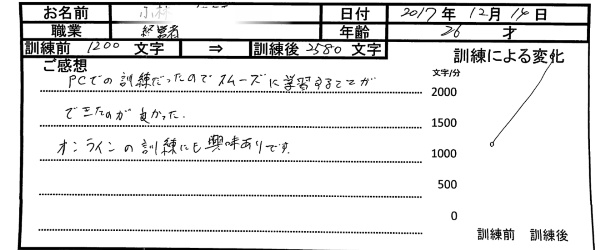 お名前 日付 2017年 12月 14日
職業 経営者 年齢 26 才
訓練前 1200 文字 ⇒ 訓練後 2580 文字
ご感想 訓練による変化
PCでの訓練だったのでスムーズに学習することが
できたのが良かった.
オンラインの訓練にも興味ありです.
文字/分
2000
1500
1000
500
0
訓練前 訓練後